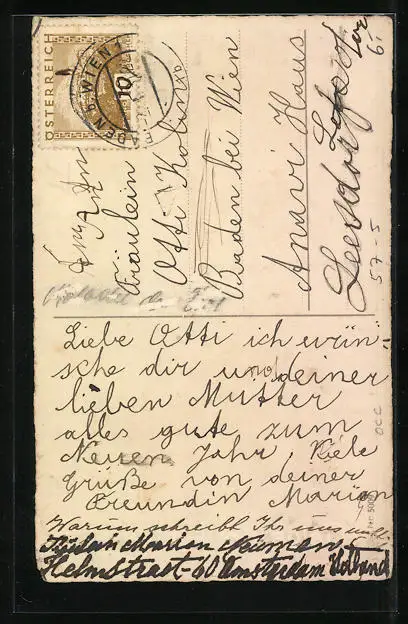 ÖSTERREICH
10
BADEN b. WIEN 1
An
Fräulein
Otti Kolin
Baden bei Wien
Anavi Haus
Leesdorf
57-5
Liebe Otti ich wün-
sche dir und deiner
lieben Mutter
alles gute zum
Neuen Jahr. Viele
Grüße von deiner
Freundin Marion
Warum schreibt Ihr uns nicht
Marion Neumen
Helmstraat-60 Amsterdam Holland